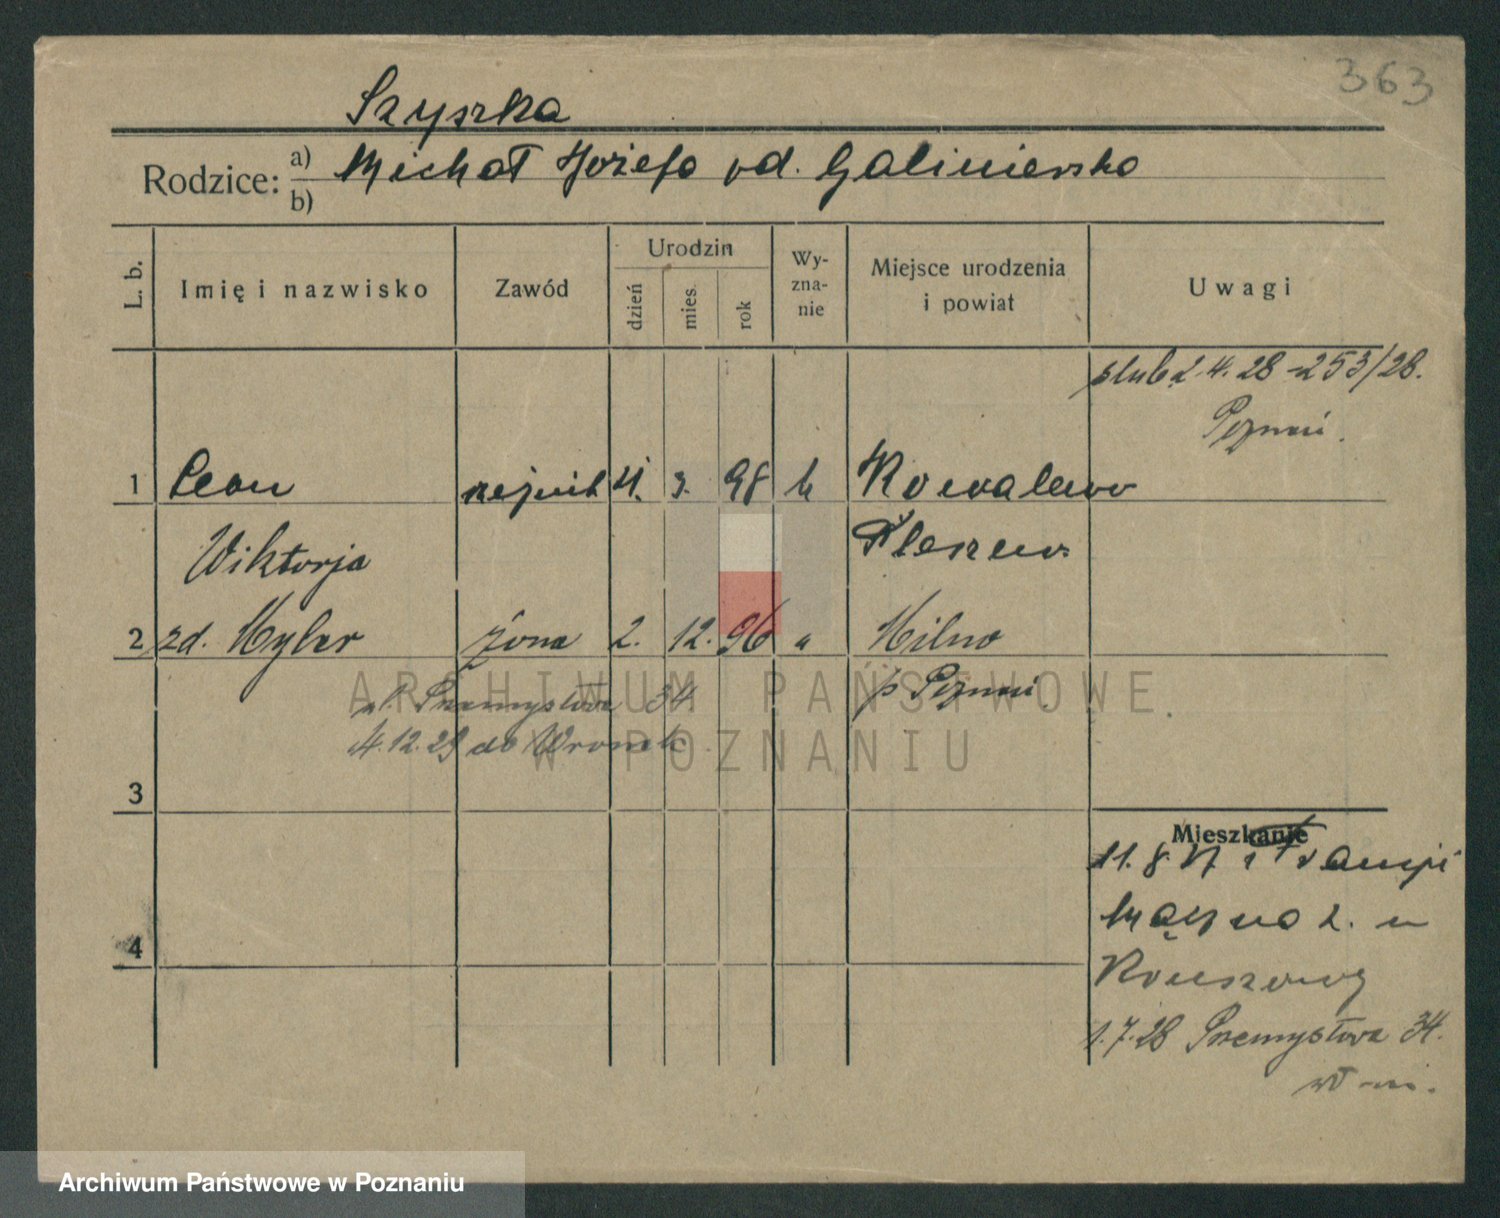 363
Szyszka
Rodzice: a) Michał Józefa od. Galiniewska
b)
L. b. Imię i nazwisko Zawód Urodzin dzień mies. rok Wy-zna-nie Miejsce urodzenia i powiat Uwagi
ślub 2.4.28 253/28.
Poznań.
1 Leon 4. 3. 98 k Kowalewo
Wiktorja Pleszew
2 zd. Myler żona 2. 12. 96 " Wilno
ul. Przemysłowa 34 p. Poznań
4.12.29 do Wronek
3
Mieszkanie
11.8.
4
1.7.28 Przemysłowa 34.
ARCHIWUM PAŃSTWOWE
W POZNANIU
Archiwum Państwowe w Poznaniu